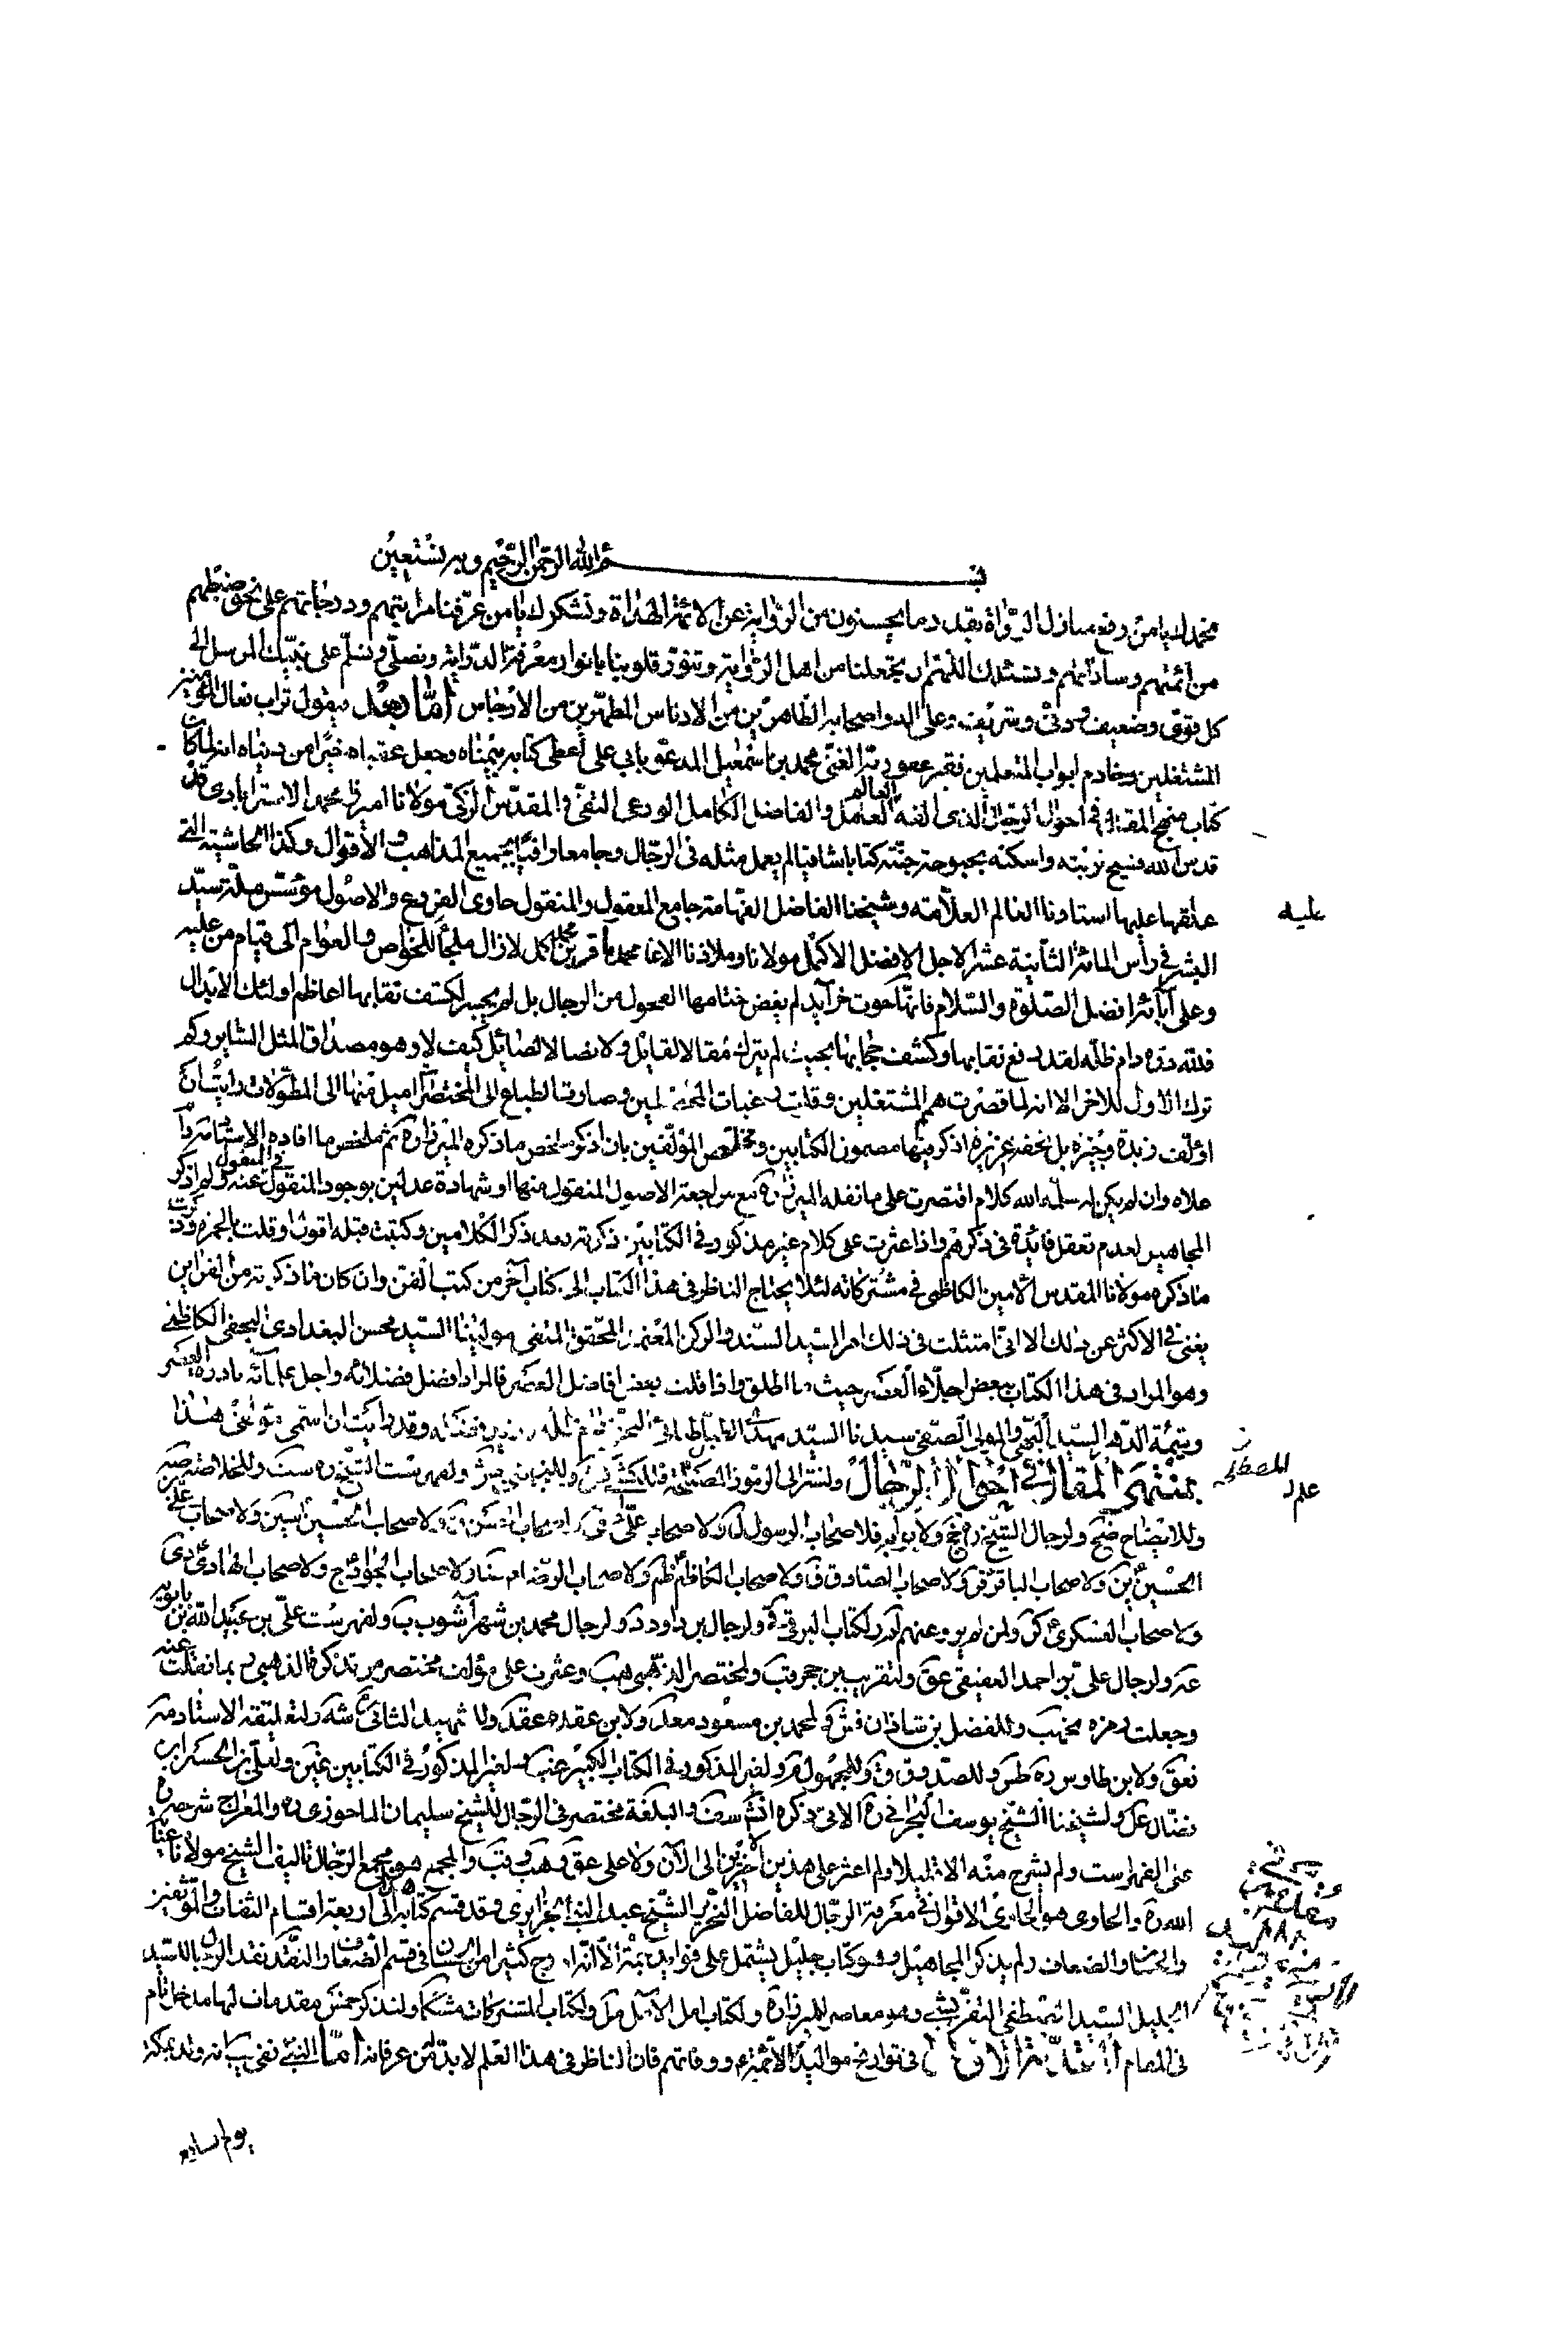 بسم الله الرحمن الرحيم وبه نستعين
نحمدك يا من رفع منازل الرواة بقدر ما يحسنون من الرواية عن الائمة الهداة ونشكرك يا من عرفنا مراتبهم ودرجاتهم على نحو ضبطهم
من أئمتهم وساداتهم ونسئلك اللهم ان تجعلنا من اهل الرواية وتنور قلوبنا بانوار معرفة الدراية ونصلي ونسلم على نبيك المرسل الى
كل قوي وضعيف ودني وشريف وعلى اله واصحابه الطاهرين من الادناس المطهرين من الارجاس اما بعد فيقول تراب نعال
المشتغلين وخادم ابواب المتعلمين فقير عفو ربه الغني محمد بن اسمعيل المدعو بابي علي أعطي كتابه بيمناه وجعل عقباه خيرا من دنياه انه لما كان
كتاب منهج المقال في احوال الرجال الذي الفه العالم العامل والفاضل الكامل الورع التقي والمقدس الزكي مولانا اميرزا محمد الاسترابادي
قدس الله فسيح تربته واسكنه بحبوحة جنته كتابا شافيا لم يعمل مثله في الرجال وجامعا وافيا بجميع المذاهب والأقوال وكذا الحاشية التي
علقها عليها استاونا العالم العلامة وشيخنا الفاضل الفهامة جامع المعقول والمنقول حاوي الفروع والاصول مؤسس ملة سيد
البشر في رأس المائة الثانية عشر الاجل الافضل الاكمل مولانا وملاذنا الاغا محمد باقر بن محمد اكمل لازال ملجأ للخواص والعوام الى قيام من عليه
وعلى آبائه افضل الصلوة والسلام فانها حوت خرآيد لم يفض ختامها الفحول من الرجال بل لم يجسر لكشف نقابها اعاظم اولئك الابدال
فلله دره دام ظله لقد رفع نقابها وكشف حجابها بحيث لم يترك مقالا لقايل ولا نصالا لصايل كيف لا وهو مصداق المثل الساير وكم
ترك الاول للاخر الا انه لما قصرت همم المشتغلين وقلت رغبات المحصلين وصارت الطباع الى المختصرات اميل منها الى المطولات رايت ان
اؤلف زبدة وجيزة بل تحفة عزيزة اذكر فيها مضمون الكتابين وملخص المؤلفين بان اذكر ملخص ما ذكره الميرزا ره ثم ملخص ما افاده الاستاد
علاه وان لم يكن له سلمه الله كلام اقتصرت على ما نقله الميرزا ره مع مراجعة الاصول المنقول منها او شهادة عدلين بوجود المنقول في المنقول عنه ولم اذكر
المجاهيل لعدم تعقل فائدة في ذكرهم واذا عثرت على كلام غير مذكور في الكتابين ذكرته بعد ذكر الكلامين وكتبت قبله اقول او قلت بالحمرة وذكرت
ما ذكره مولانا المقدس الامين الكاظمي في مشتركاته لئلا يحتاج الناظر في هذا الكتاب الى كتاب آخر من كتب الفن وان كان ما ذكرته من القراين
يغني في الاكثر عن ذلك الا اني امتثلت في ذلك امر السيد السند والركن المعتمد المحقق المتقي مولينا السيد محسن البغدادي النجفي الكاظمي
وهو المراد في هذا الكتاب ببعض اجلاء العصر حيث ما اطلق واذا قلت بعض افاضل العصر فالمراد افضل فضلائه واجل علمائه نادرة العصر
ويتيمة الدهر السيد البهي والمولى الصفي سيدنا السيد مهدي الطباطبائي النجفي دام ظله وقد رايت ان اسمي مؤلفي هذا
بمنتهى المقال في احوال الرجال ولنشر الى الرموز المصطلحة فللكشي كش وللنجاشي جش ولفهرست الشيخ ره ست وللخلاصة صه
وللايضاح ضح ولرجال الشيخ ره جخ ولابوابه فلاصحاب الرسول ل ولاصحاب علي ى ولاصحاب الحسن ن ولاصحاب الحسين سين ولاصحاب علي
بن الحسين ين ولاصحاب الباقر قر ولاصحاب الصادق ق ولاصحاب الكاظم ظم ولاصحاب الرضا ضا ولاصحاب الجواد ج ولاصحاب الهادي دى
ولاصحاب العسكري كر ولمن لم يرو عنهم لم ولكتاب البرقي قي ولرجال بن داود د ولرجال محمد بن شهراشوب ب ولفهرست علي بن عبيد الله بن بابويه
عه ولرجال علي بن احمد العقيقي عق ولتقريب بن حجر قب ولمختصر الذهبي هب وعثرت على مؤلف مختصر من تذكرة الذهبي ربما نقلت عنه
وجعلت رمزه مخهب وللفضل بن شاذان فش ولمحمد بن مسعود معد ولابن عقده عقد وللشهيد الثاني شه ولتعليقة الاستاد مد
تعق ولابن طاوس ره طس وللصدوق ق وللمجهول م ولغير المذكور في الكتاب الكبير غب ولغير المذكور في الكتابين غين ولعلي بن الحسن ابن
فضال عل ولشيخنا الشيخ يوسف البحراني ره الاتي ذكره انش سف والبلغة مختصر في الرجال للشيخ سليمان الماحوزي ره والمعراج شرحه ره
على الفهرست ولم يشرح منه الا قليلا ولم اعثر على هذين الاخيرين الى الآن ولا على عق وهب وقب والمجمع هو مجمع الرجال تاليف الشيخ مولانا عناية
الله ره والحاوي هو الحاوي الاقوال في معرفة الرجال للفاضل النحرير الشيخ عبد النبي الجزايري وقد قسم كتابه الى اربعة اقسام الثقات والموثقين
والحسان والضعاف ولم يذكر المجاهيل وهو كتاب جليل يشتمل على فوايد جمة الا انه ادرج كثيرا من الحسان في قسم الضعاف والنقد نقد الرجال للسيد
الجليل السيد مصطفى التفريشي وهو معاصر للميرزا ره ولكتاب امل الآمل مل ولكتاب المشتركات مشكا ولنذكر خمس مقدمات لها مدخل تام
في المقام المقدمة الاولى في تواريخ مواليد الائمة ووفاتهم فان الناظر في هذا العلم لابد له من عرفانه اما النبي ففي بيانه ولد بمكة
عليه
يوم سابع